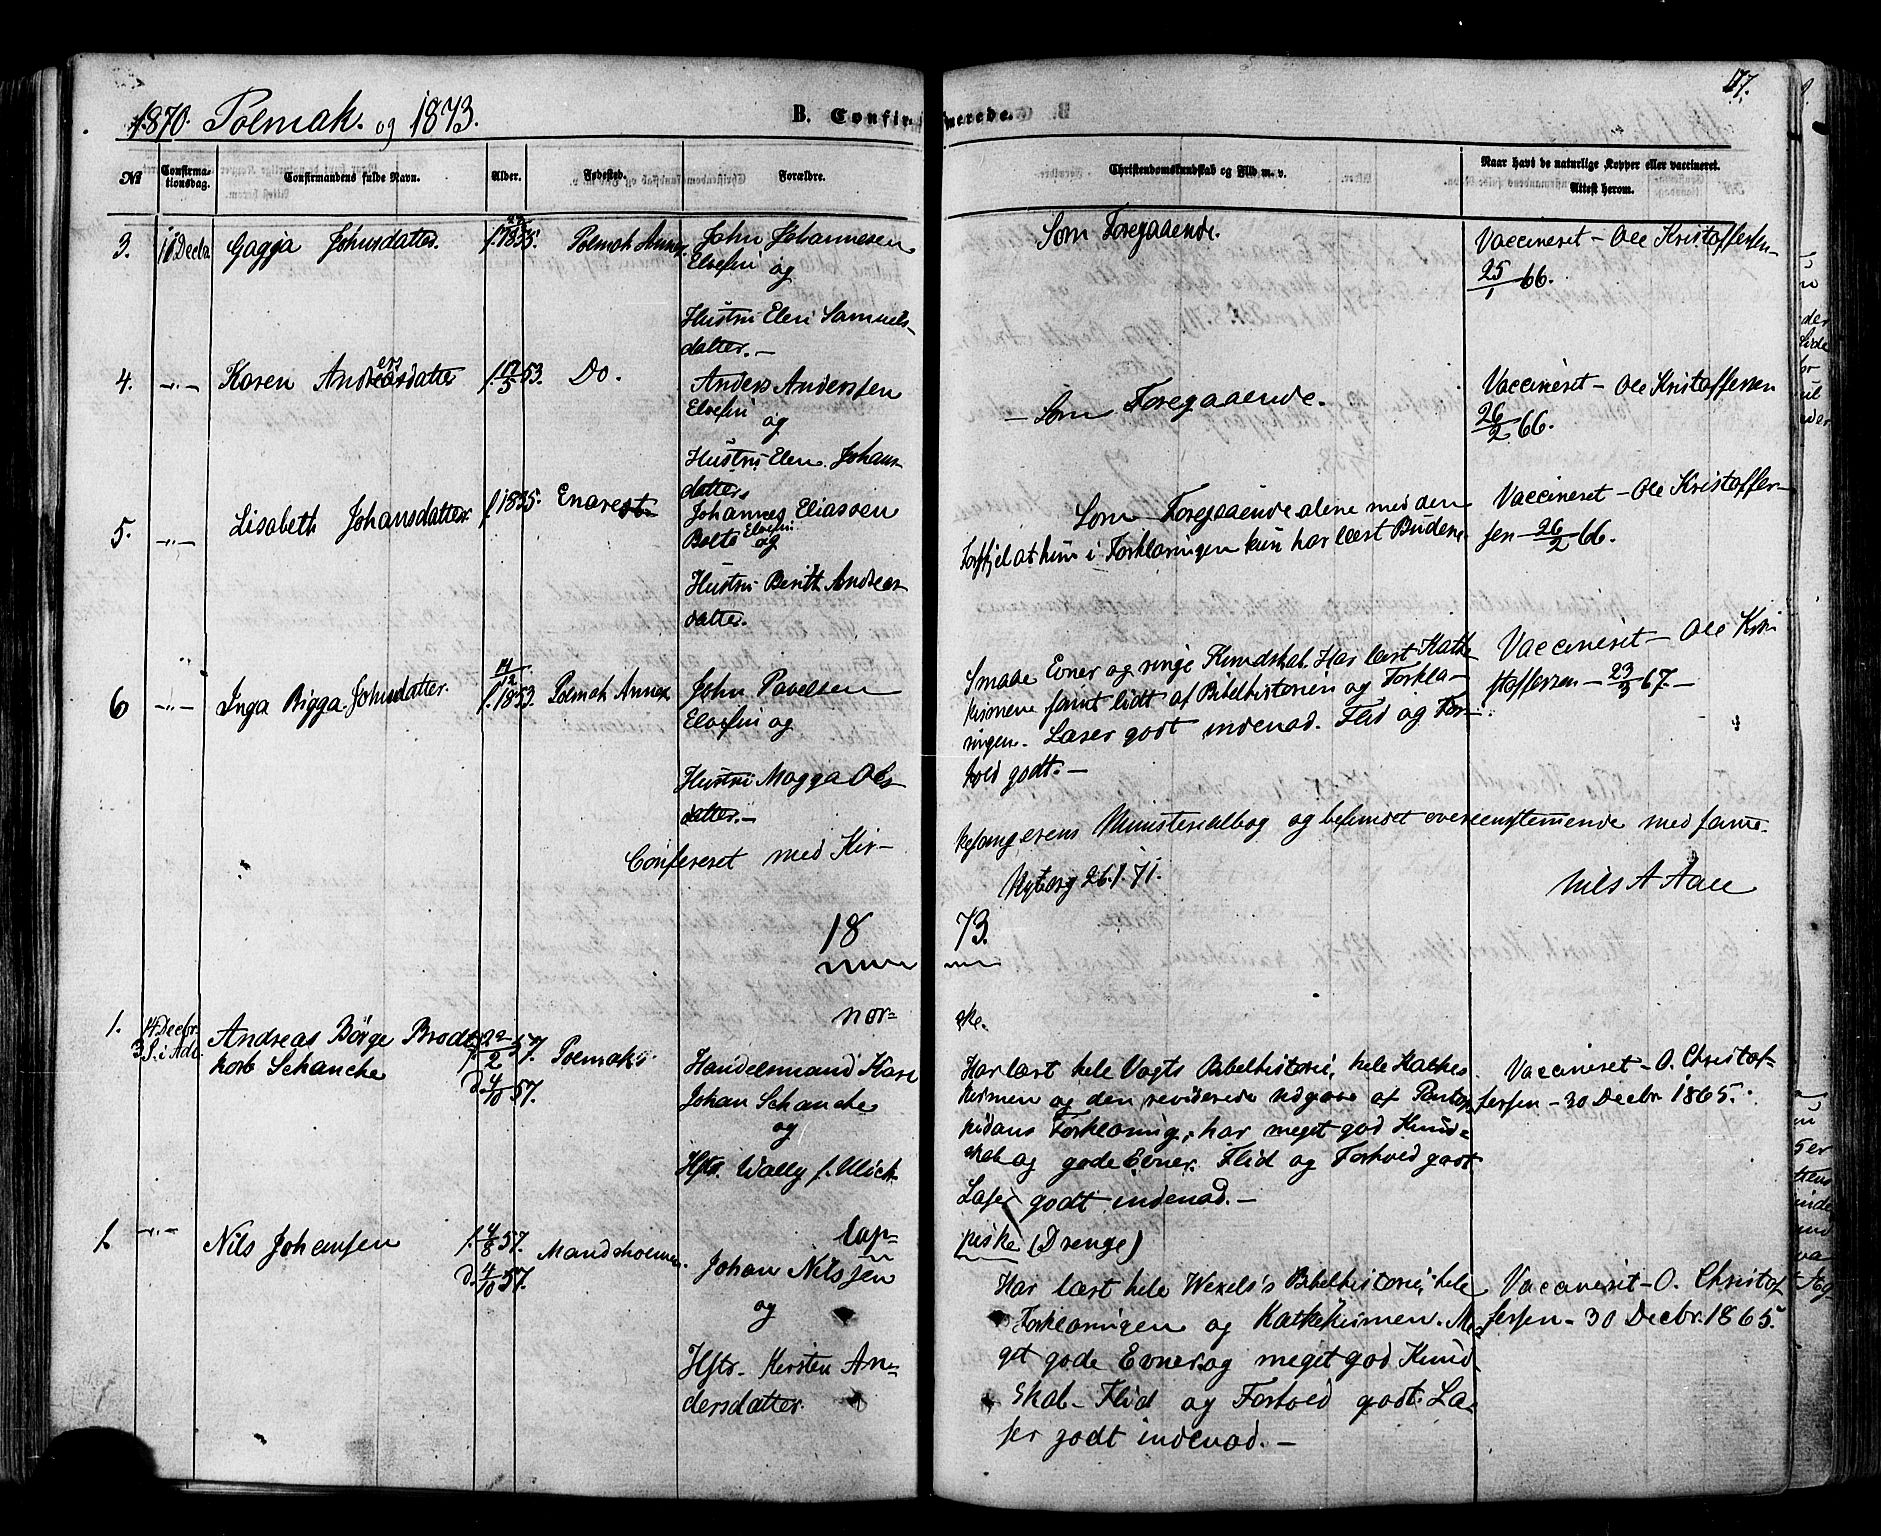 1870. Polmak. og 1873.
B. Confirmerede.
177.
No
Confirmationsdag.
Confirmandens fulde Navn.
Alder.
Fødested.
Forældre.
Christendomskundskab og Flid m. v.
Naar havd de naturlige Kopper eller vaccineret.
Attest herom.
3.
11 Decbr
Gagga Johnsdatter.
f. 1855.
Polmak Annex
John Johannesen
Elvefin og
Hustru Elen Samuels-
datter. -
Som Foregaaende.
Vaccineret - Ole Kristoffersen
25/1 66.
4.
-"-
Karen Andersdatter
f. 17/5 53.
Do.
Anders Anderssen
Elvefin og
Hustru Elen Johans
datter.
- Som Foregaaende.
Vaccineret - Ole Kristoffersen
26/2 66.
5.
-"-
Lisabeth Johansdatter
f. 1855.
Enare
Johannes Eliassen
Balto Elvefin og
Hustru Beritt Andreas
datter.
Som Foregaaende alene med den
Forskjel at hun i Forklaringen kun har lært Budene.
Vaccineret - Ole Kristoffer-
sen - 26/2 66.
6
-"-
Inga Bigga Johnsdatter.
14/12 f. 1853.
Polmak Annex
John Pavelsen
Elvefin og
Hustru Magga Ols
datter. -
Smaae Evner og ringe Kundskab. Har lært Kathe
kismene samt lidt af Bibelhistorien og Forkla-
ringen. Læser godt indenad. Flid og For-
hold godt. -
Vaccineret - Ole Kri
stoffersen - 23/3 67. -
Confereret med Kir-
kesangerens Ministerialbog og befundet overeensstemmende med samme.
Nyborg 26.1.71.
Nils A Aall
1873.
norske.
1.
14 Decbr.
3 S. i Adv.
Andreas Börge Brodt
korb Schanche
f. 22/2 57.
d. 4/10 57.
Polmak
Handelsmand Karl
Johan Schanche
og
Hstr. Wally f. Ulich
Har lært hele Vogts Bibelhistorie, hele Kathe
kismen og den reviderede Udgave af Pontop
pidans Forklaring, har meget god Kund-
skab og gode Evner. Flid og Forhold godt
Læser godt indenad. -
Vaccineret - O. Christof-
fersen - 30 Decbr. 1865.
lappiske (Drenge)
1.
-"-
Nils Johansen
f. 4/8 57.
d. 4/10 57.
Mandsholmen.
Johan Nilssen
og
Hstr. Kersten An-
dersdatter.
Har lært hele Wexels's Bibelhistorie, hele
Forklaringen og Kathekismen. Me
get gode Evner og meget god Kund
skab - Flid og Forhold godt. Læ-
ser godt indenad. -
Vaccineret - O. Christof
fersen - 30 Decbr. 1865.